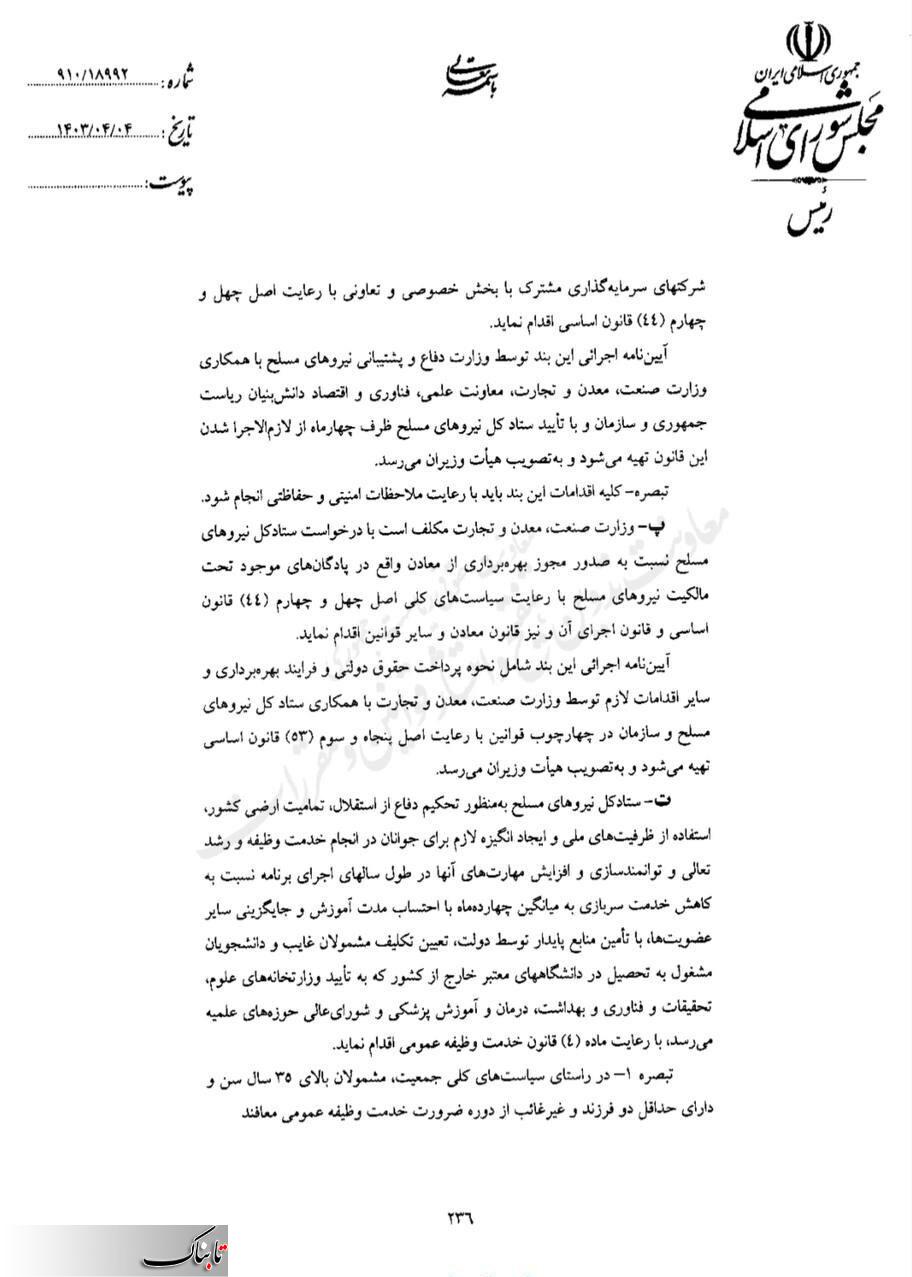 جمهوری اسلامی ایران
مجلس شورای اسلامی
رئیس
باسمه تعالی
شماره: ۹۱۰/۱۸۹۹۲
تاریخ: ۱۴۰۳/۰۴/۰۴
پیوست:
شرکتهای سرمایه‌گذاری مشترک با بخش خصوصی و تعاونی با رعایت اصل چهل و
چهارم (٤٤) قانون اساسی اقدام نماید.
آیین‌نامه اجرائی این بند توسط وزارت دفاع و پشتیبانی نیروهای مسلح با همکاری
وزارت صنعت، معدن و تجارت، معاونت علمی، فناوری و اقتصاد دانش‌بنیان ریاست
جمهوری و سازمان و با تأیید ستاد کل نیروهای مسلح ظرف چهارماه از لازم‌الاجرا شدن
این قانون تهیه می‌شود و به‌تصویب هیأت وزیران می‌رسد.
تبصره– کلیه اقدامات این بند باید با رعایت ملاحظات امنیتی و حفاظتی انجام شود.
پ– وزارت صنعت، معدن و تجارت مکلف است با درخواست ستادکل نیروهای
مسلح نسبت به صدور مجوز بهره‌برداری از معادن واقع در پادگان‌های موجود تحت
مالکیت نیروهای مسلح با رعایت سیاست‌های کلی اصل چهل و چهارم (٤٤) قانون
اساسی و قانون اجرای آن و نیز قانون معادن و سایر قوانین اقدام نماید.
آیین‌نامه اجرائی این بند شامل نحوه پرداخت حقوق دولتی و فرایند بهره‌برداری و
سایر اقدامات لازم توسط وزارت صنعت، معدن و تجارت با همکاری ستاد کل نیروهای
مسلح و سازمان در چهارچوب قوانین با رعایت اصل پنجاه و سوم (۵۳) قانون اساسی
تهیه می‌شود و به‌تصویب هیأت وزیران می‌رسد.
ت– ستادکل نیروهای مسلح به‌منظور تحکیم دفاع از استقلال، تمامیت ارضی کشور،
استفاده از ظرفیت‌های ملی و ایجاد انگیزه لازم برای جوانان در انجام خدمت وظیفه و رشد
تعالی و توانمندسازی و افزایش مهارت‌های آنها در طول سالهای اجرای برنامه نسبت به
کاهش خدمت سربازی به میانگین چهارده‌ماه با احتساب مدت آموزش و جایگزینی سایر
عضویت‌ها، با تأمین منابع پایدار توسط دولت، تعیین تکلیف مشمولان غایب و دانشجویان
مشغول به تحصیل در دانشگاههای معتبر خارج از کشور که به تأیید وزارتخانه‌های علوم،
تحقیقات و فناوری و بهداشت، درمان و آموزش پزشکی و شورای‌عالی حوزه‌های علمیه
می‌رسد، با رعایت ماده (٤) قانون خدمت وظیفه عمومی اقدام نماید.
تبصره ۱– در راستای سیاست‌های کلی جمعیت، مشمولان بالای ۳۵ سال سن و
دارای حداقل دو فرزند و غیرغائب از دوره ضرورت خدمت وظیفه عمومی معافند
۲۳٦
تابناک